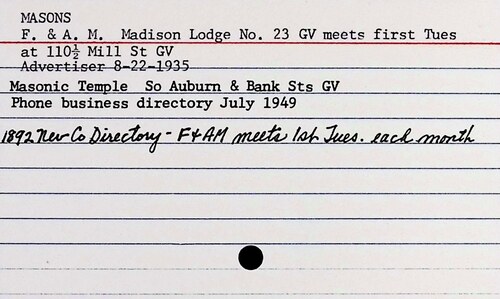 MASONS
F. & A. M.  Madison Lodge No. 23 GV meets first Tues
at 110½ Mill St GV
Advertiser 8-22-1935
Masonic Temple  So Auburn & Bank Sts GV
Phone business directory July 1949
1892 Nev Co Directory - F&AM meets 1st Tues. each month